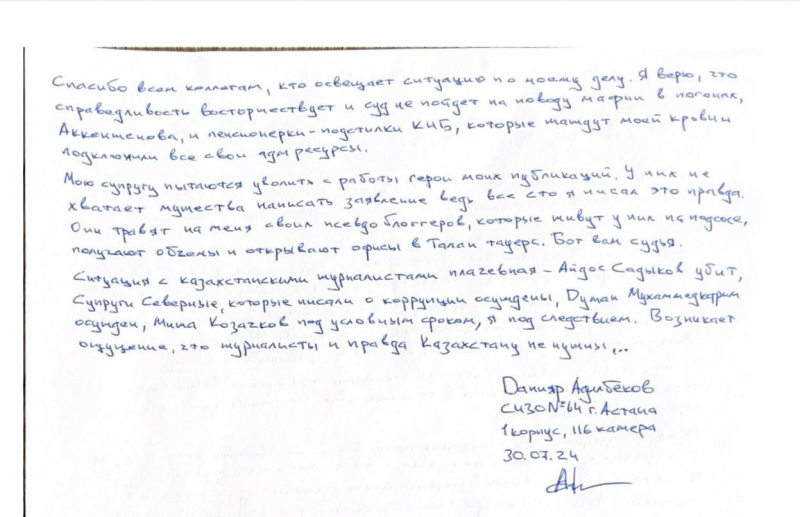 Спасибо всем коллегам, кто освещает ситуацию по моему делу. Я верю, что
справедливость восторжествует и суд не пойдет на поводу мафии в погонах,
Аккенженова, и пенсионерки-подстилки КНБ, которые жаждут моей крови и
подключили все свои адм ресурсы.
Мою супругу пытаются уволить с работы герои моих публикаций. У них не
хватает мужества написать заявление ведь все что я писал это правда.
Они травят на меня своих псевдоблоггеров, которые живут у них на подсосе,
получают объемы и открывают офисы в Талан тауэрс. Бог вам судья.
Ситуация с казахстанскими журналистами плачевная - Айдос Садыков убит,
Супруги Северные, которые писали о коррупции осуждены, Думан Мухаммедкарим
осужден, Миша Козачков под условным сроком, я под следствием. Возникает
ощущение, что журналисты и правда Казахстану не нужны...
Данияр Адилбеков
СИЗО №64 г. Астана
1 корпус, 116 камера
30.07.24